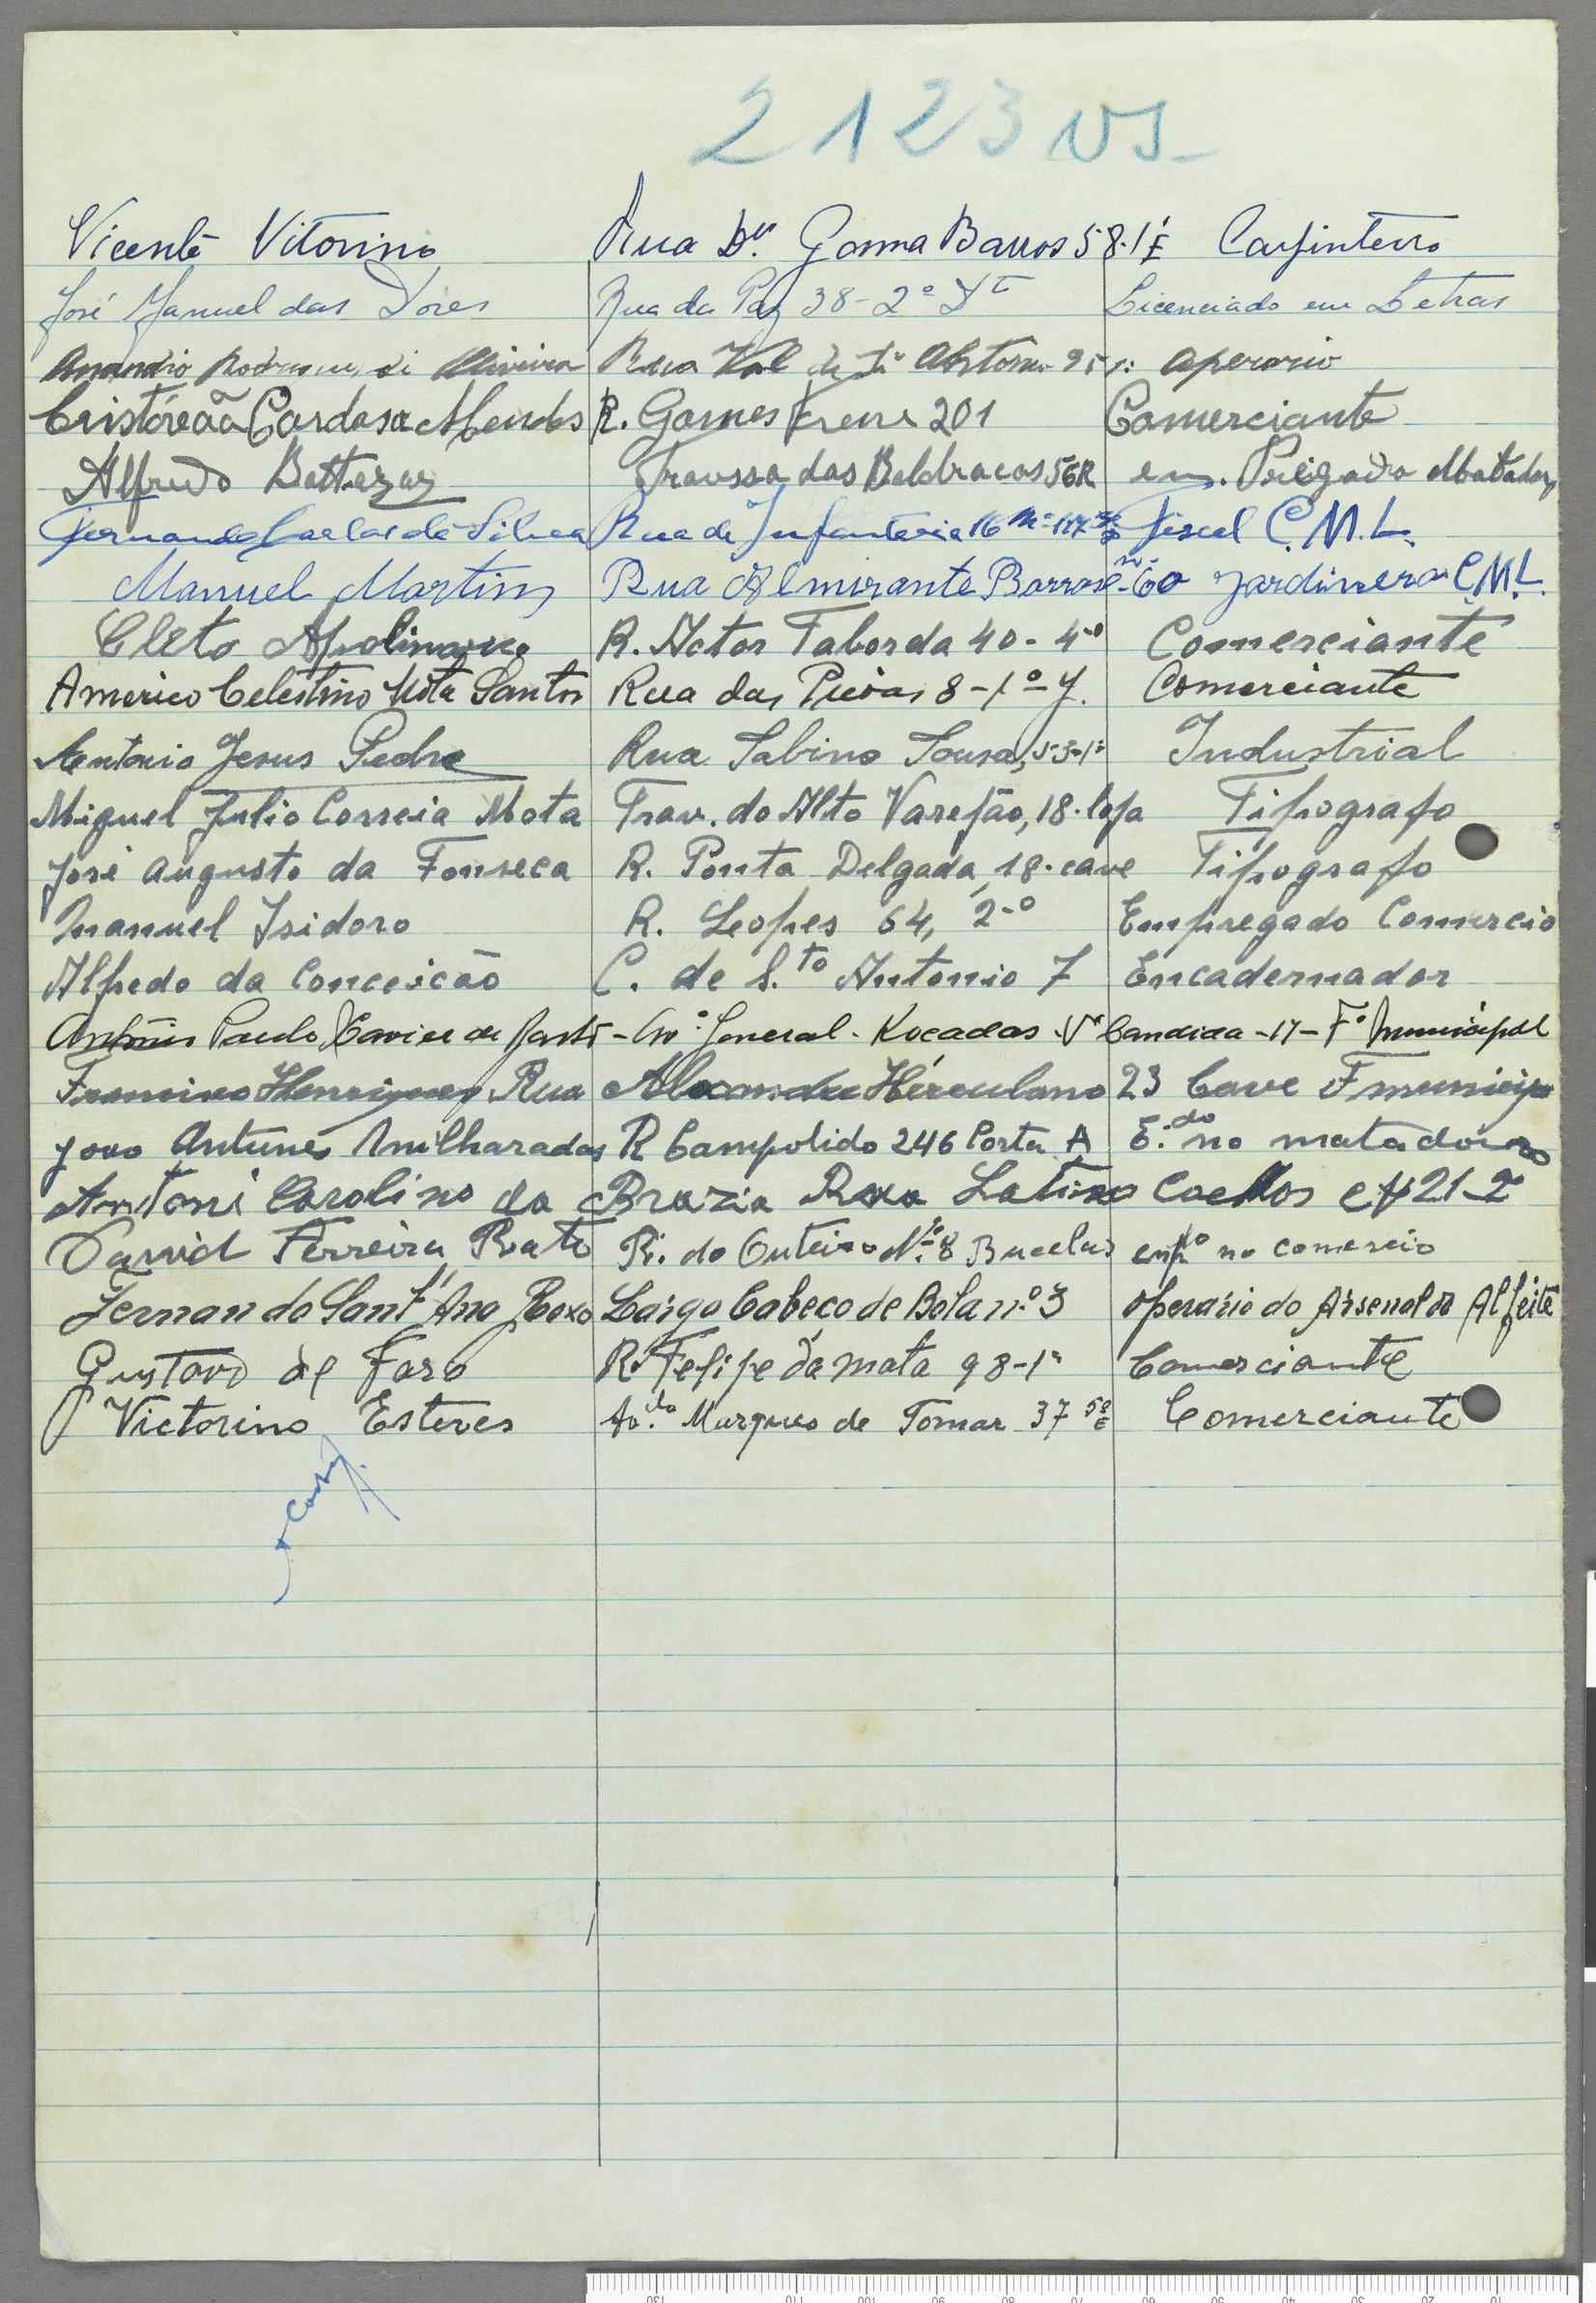 2123 vs
Vicente Vitorino Rua Dr. Gama Barros 58-1º E Carpinteiro
José Manuel das Dores Rua da Paz 38-2º Dt Licenciado em Letras
Amandio Rodrigues de Oliveira Rua Val de Stº António 95 Operario
Cristóvão Cardoso Mendes R. Gomes Freire 201 Comerciante
Alfredo Travssa das Beldracas 56R Matador
Fernando Carlos da Silva Rua de Infanteria 16 Nº 117 Fiscal C.M.L.
Manuel Martins Rua Almirante Barroso nº 60 Jardineiro C.M.L.
Cleto Apolinario R. Actor Taborda 40-4º Comerciante
Americo Celestino Mota Santos Rua das 8-1º Comerciante
Antonio Jesus Pedro Rua Sabino Sousa, 53-1º Industrial
Miguel Julio Correia Mota Trav. do Alto Varejão, 18-loja Tipografo
José Augusto da Fonseca R. Ponta Delgada, 18-cave Tipografo
Manuel Isidoro R. Lopes 64, 2-º Empregado Comercio
Alfredo da Conceição C. de S.to Antonio 7 Encadernador
António Paulo Xavier de - Av: General - Rocadas Vª Candida -17- Fº Municipal
Francisco Henriques Rua Alexandre Hérculano 23 Cave F municipa
João Antunes Milharadas R Campolido 246 Porta A E.do no matadouro
Antoni Carolino da Brazia Rua Latino Coelhos Nº 21-2º
David Ferreira Rato R. do Outeiro N.º 8 Bucelas empdo no comercio
Fernando Sant'Ana Roxo Largo Cabeço de Bola n.º 3 Operário do Arsenal do Alfeite
Gustavo de Faro R. Felipe da Mata 98-1º Comerciante
Victorino Esteves Av.da Marques de Tomar 37 5º E Comerciante